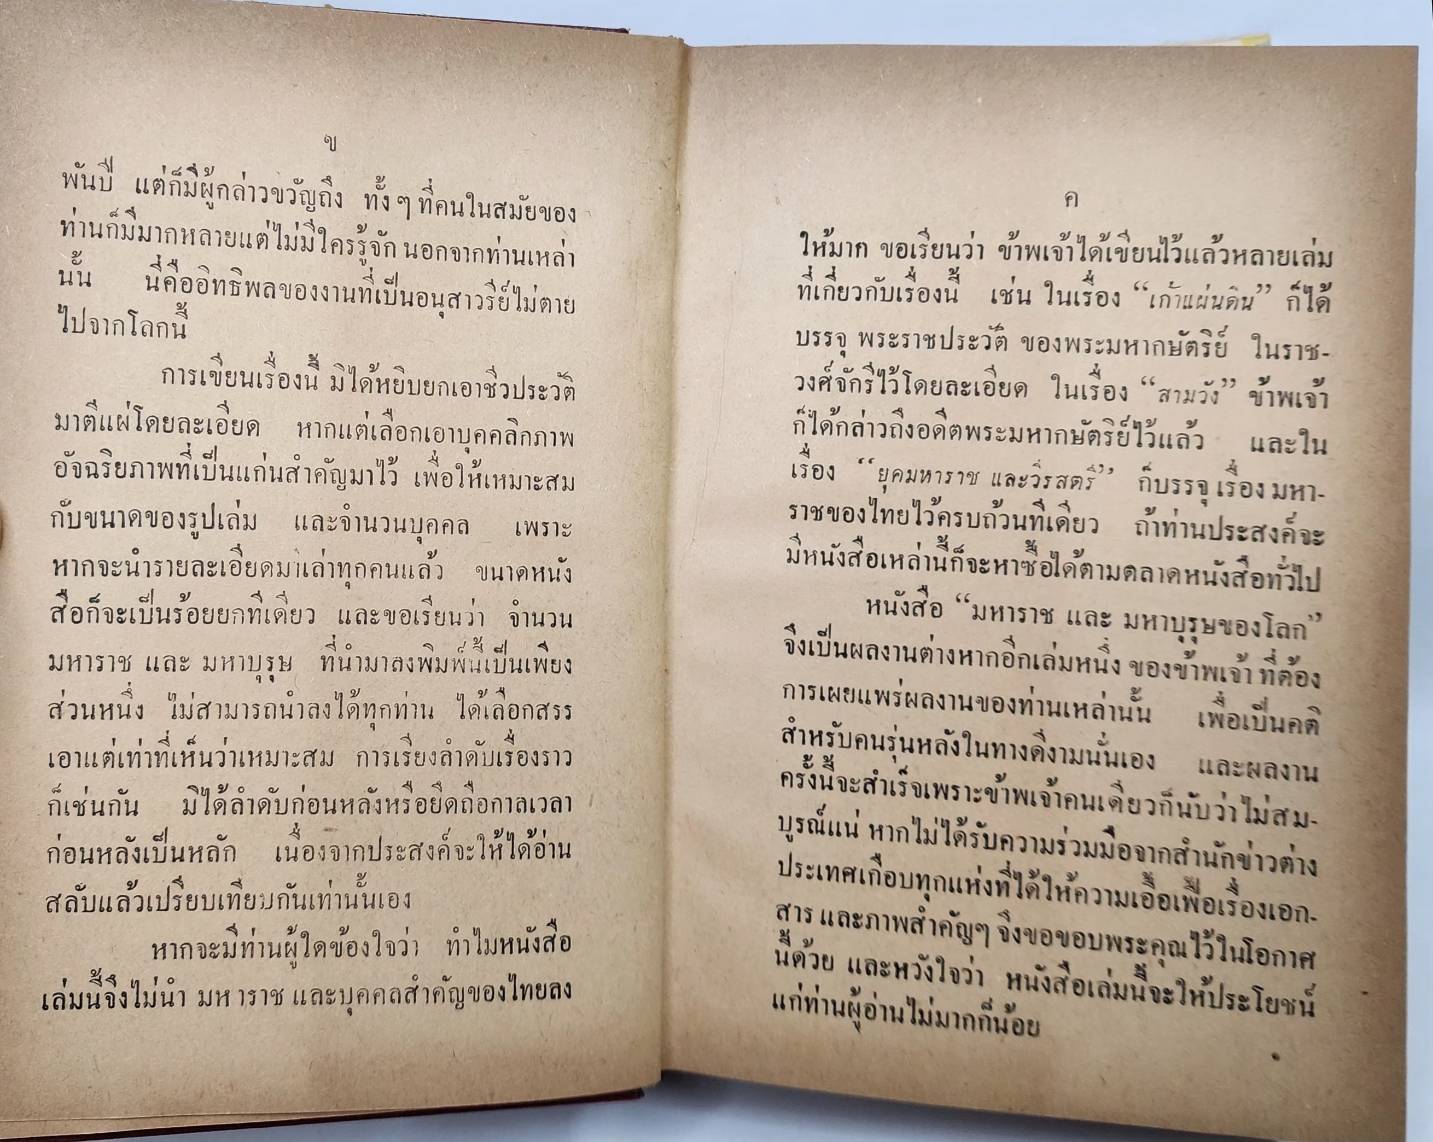 ข
พันปี แต่ก็มีผู้กล่าวขวัญถึง ทั้ง ๆ ที่คนในสมัยของ
ท่านก็มีมากหลายแต่ไม่มีใครรู้จัก นอกจากท่านเหล่า
นั้น นี่คืออิทธิพลของงานที่เป็นอนุสาวรีย์ไม่ตาย
ไปจากโลกนี้
การเขียนเรื่องนี้ มิได้หยิบยกเอาชีวประวัติ
มาตีแผ่โดยละเอียด หากแต่เลือกเอาบุคคลิกภาพ
อัจฉริยภาพที่เป็นแก่นสำคัญมาไว้ เพื่อให้เหมาะสม
กับขนาดของรูปเล่ม และจำนวนบุคคล เพราะ
หากจะนำรายละเอียดมาเล่าทุกคนแล้ว ขนาดหนัง
สือก็จะเป็นร้อยยกทีเดียว และขอเรียนว่า จำนวน
มหาราช และ มหาบุรุษ ที่นำมาลงพิมพ์นี้เป็นเพียง
ส่วนหนึ่ง ไม่สามารถนำลงได้ทุกท่าน ได้เลือกสรร
เอาแต่เท่าที่เห็นว่าเหมาะสม การเรียงลำดับเรื่องราว
ก็เช่นกัน มิได้ลำดับก่อนหลังหรือยึดถือกาลเวลา
ก่อนหลังเป็นหลัก เนื่องจากประสงค์จะให้ได้อ่าน
สลับแล้วเปรียบเทียบกันเท่านั้นเอง
หากจะมีท่านผู้ใดข้องใจว่า ทำไมหนังสือ
เล่มนี้จึงไม่นำ มหาราช และบุคคลสำคัญของไทยลง
ค
ให้มาก ขอเรียนว่า ข้าพเจ้าได้เขียนไว้แล้วหลายเล่ม
ที่เกี่ยวกับเรื่องนี้ เช่น ในเรื่อง “เก้าแผ่นดิน” ก็ได้
บรรจุ พระราชประวัติ ของพระมหากษัตริย์ ในราช-
วงศ์จักรีไว้โดยละเอียด ในเรื่อง “สามวัง” ข้าพเจ้า
ก็ได้กล่าวถึงอดีตพระมหากษัตริย์ไว้แล้ว และใน
เรื่อง “ยุคมหาราช และวีรสตรี” ก็บรรจุ เรื่อง มหา-
ราชของไทยไว้ครบถ้วนทีเดียว ถ้าท่านประสงค์จะ
มีหนังสือเหล่านี้ก็จะหาซื้อได้ตามตลาดหนังสือทั่วไป
หนังสือ “มหาราช และ มหาบุรุษของโลก”
จึงเป็นผลงานต่างหากอีกเล่มหนึ่ง ของข้าพเจ้า ที่ต้อง
การเผยแพร่ผลงานของท่านเหล่านั้น เพื่อเป็นคติ
สำหรับคนรุ่นหลังในทางดีงามนั่นเอง และผลงาน
ครั้งนี้จะสำเร็จเพราะข้าพเจ้าคนเดียวก็นับว่าไม่สม-
บูรณ์แน่ หากไม่ได้รับความร่วมมือจากสำนักข่าวต่าง
ประเทศเกือบทุกแห่งที่ได้ให้ความเอื้อเฟื้อเรื่องเอก-
สาร และภาพสำคัญๆ จึงขอขอบพระคุณไว้ในโอกาศ
นี้ด้วย และหวังใจว่า หนังสือเล่มนี้จะให้ประโยชน์
แก่ท่านผู้อ่านไม่มากก็น้อย